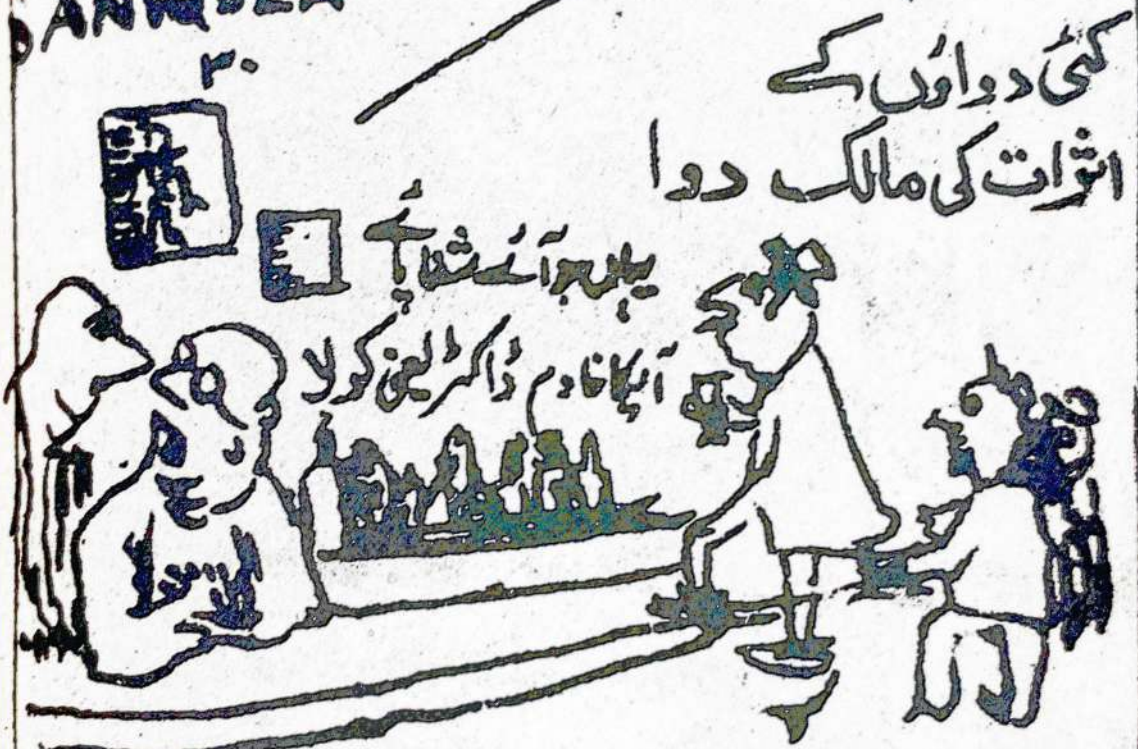 ۳۰
کئی دواؤں کے
اثرات کی مالک دوا
یہاں جو آئے شفا پائے
آپکا خادم ڈاکٹر یعنی کولا